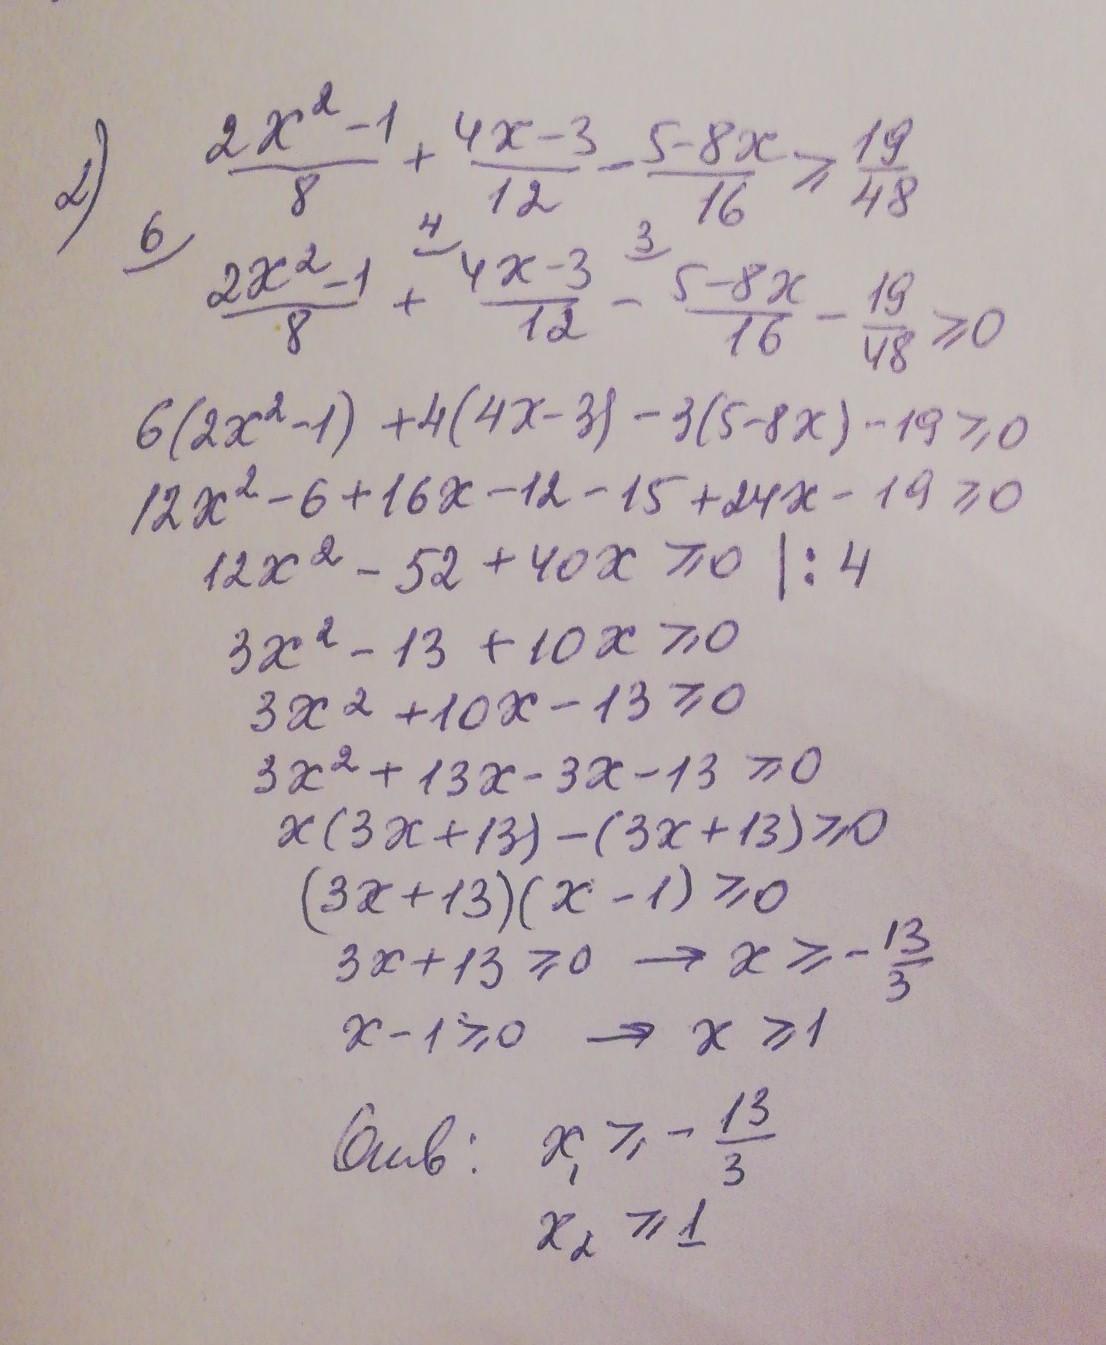 2) (2x² - 1)/8 + (4x - 3)/12 - (5 - 8x)/16 ⩾ 19/48
6/ (2x² - 1)/8 + 4/ (4x - 3)/12 - 3/ (5 - 8x)/16 - 19/48 ⩾ 0
6(2x² - 1) + 4(4x - 3) - 3(5 - 8x) - 19 ⩾ 0
12x² - 6 + 16x - 12 - 15 + 24x - 19 ⩾ 0
12x² - 52 + 40x ⩾ 0 | : 4
3x² - 13 + 10x ⩾ 0
3x² + 10x - 13 ⩾ 0
3x² + 13x - 3x - 13 ⩾ 0
x(3x + 13) - (3x + 13) ⩾ 0
(3x + 13)(x - 1) ⩾ 0
3x + 13 ⩾ 0 → x ⩾ - 13/3
x - 1 ⩾ 0 → x ⩾ 1
Отв: x₁ ⩾ - 13/3
x₂ ⩾ 1